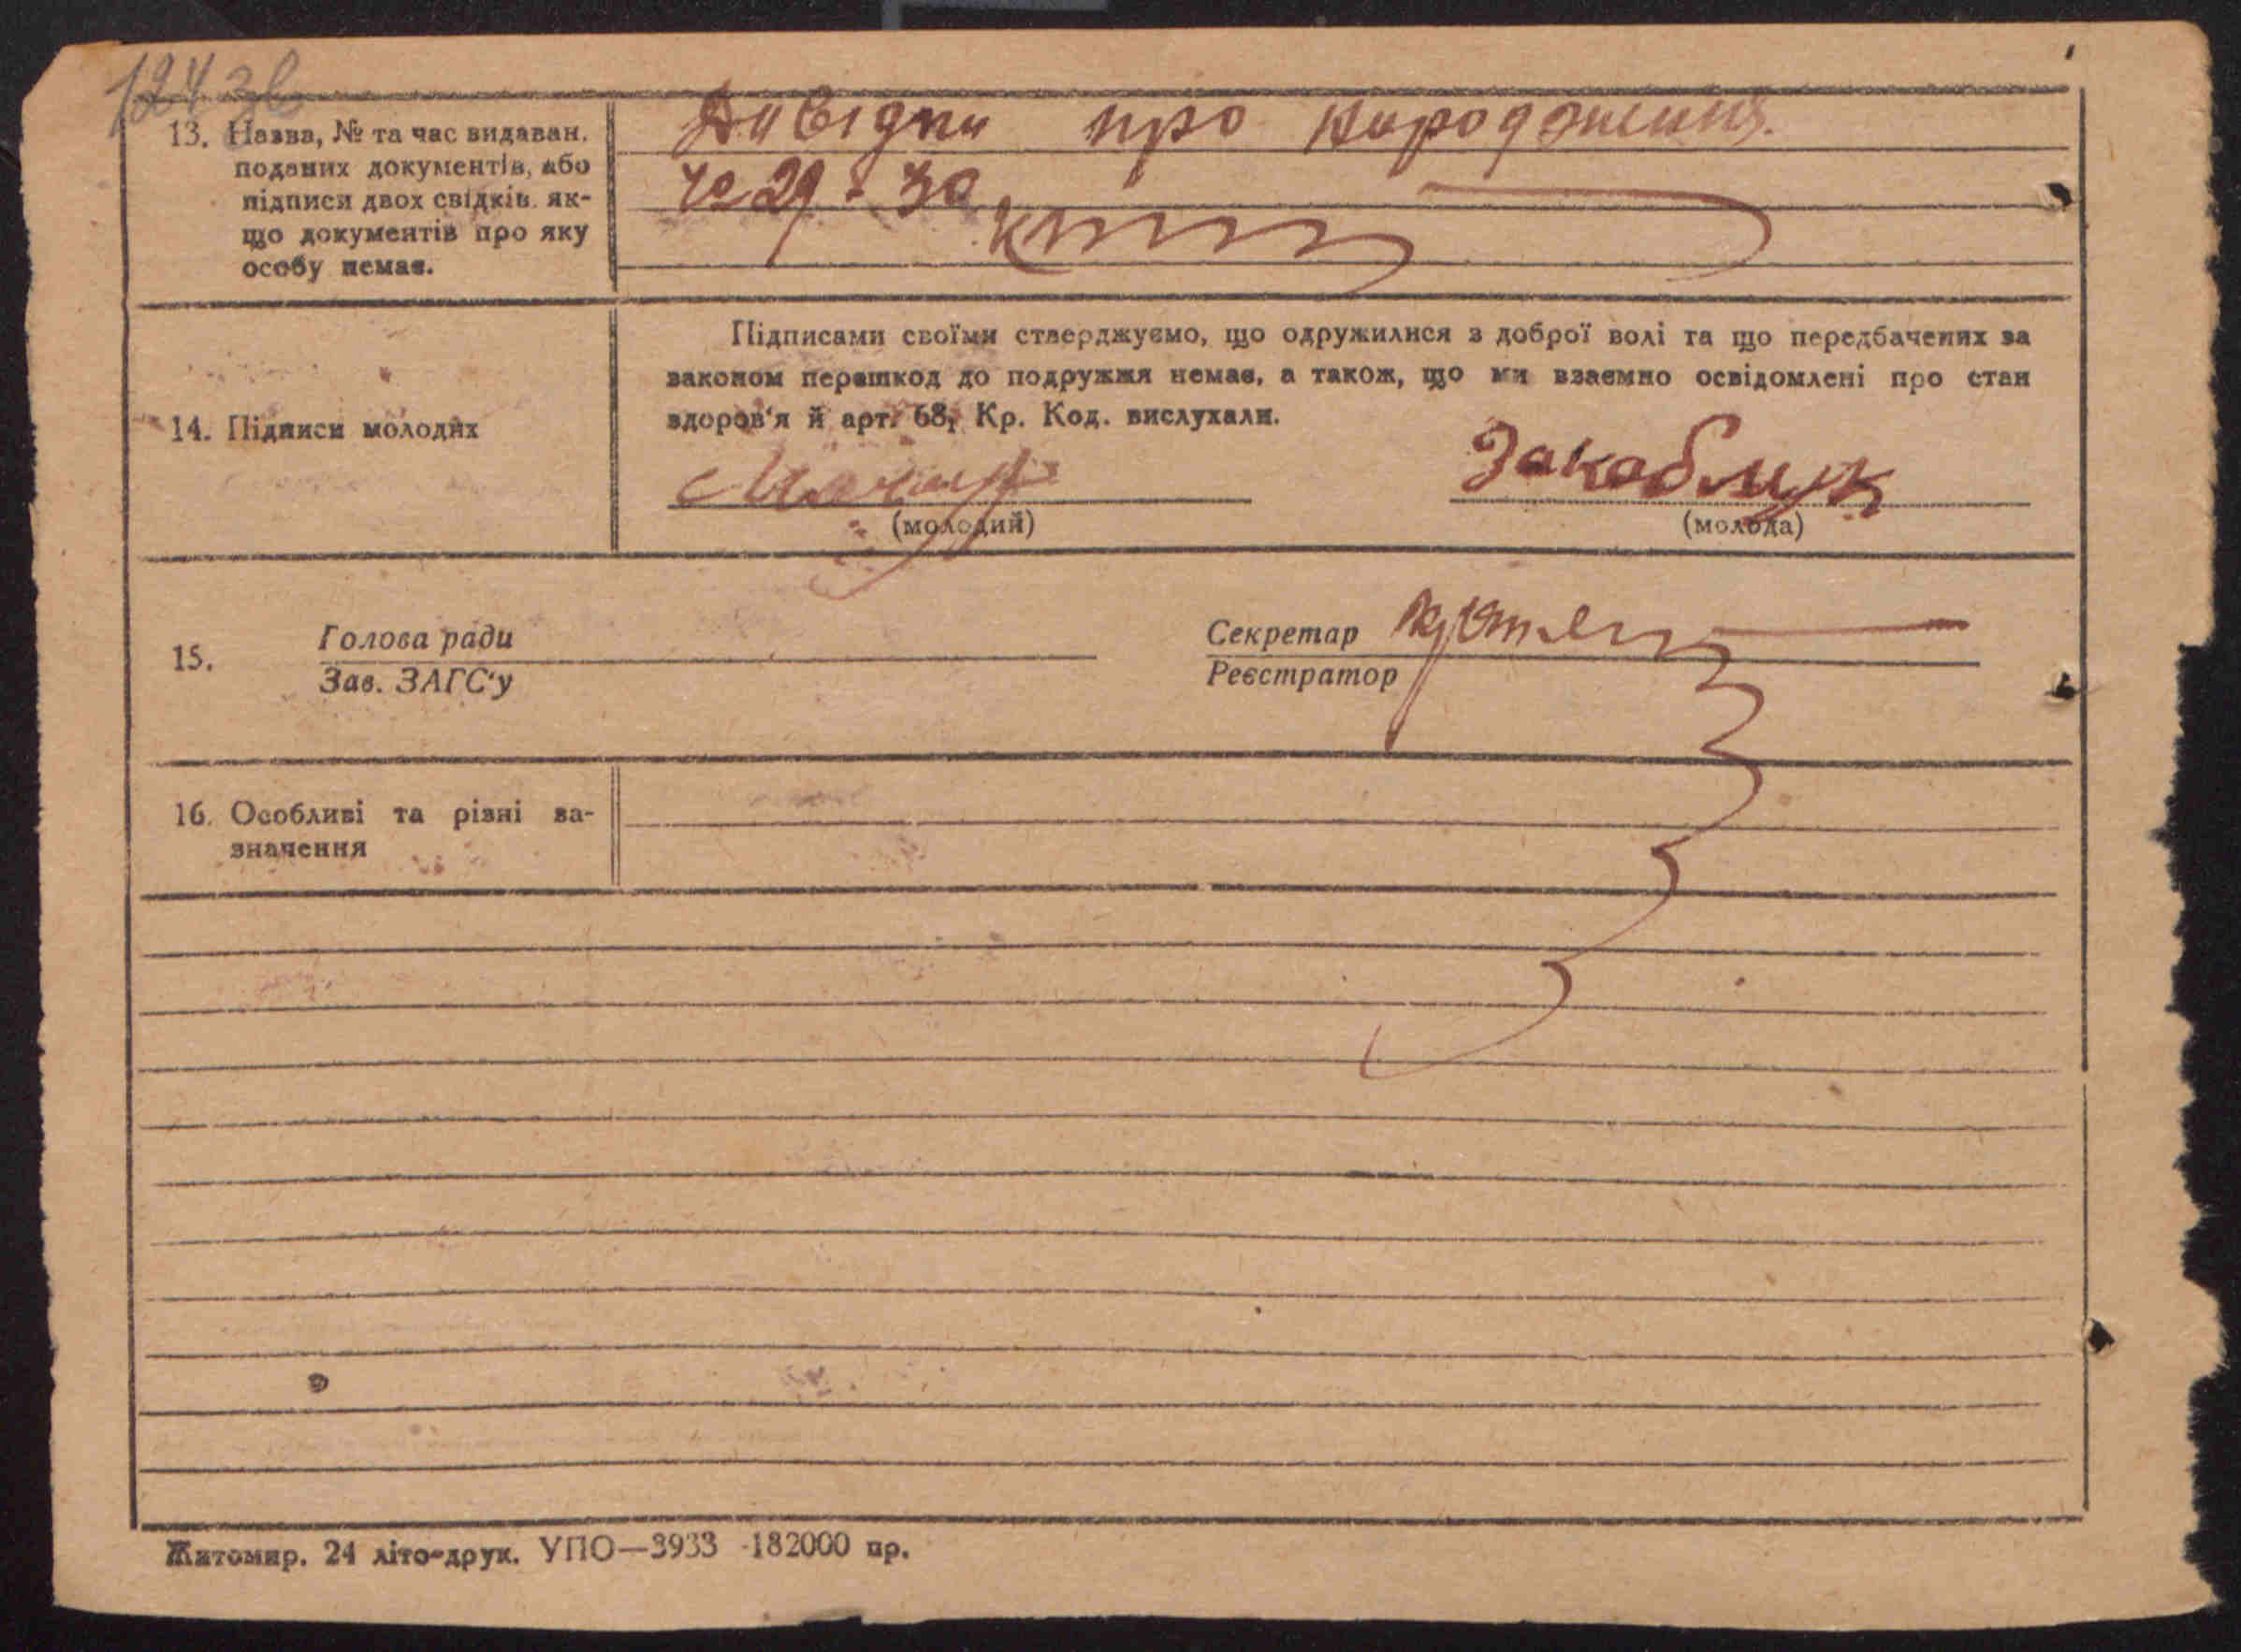 124 зв
13. Назва, № та час видаван.
поданих документів, або
підписи двох свідків, як-
що документів про яку
особу немає.
Довідки про народження.
№ 29 - 30
14. Підписи молодих
Підписами своїми стверджуємо, що одружилися з доброї волі та що передбачених за
законом перешкод до подружжя немає, а також, що ми взаємно освідомлені про стан
здоров'я й арт. 68, Кр. Код. вислухали.
Закаблук
(молодий) (молода)
15. Голова ради Секретар
Зав. ЗАГС'у Реєстратор
16. Особливі та різні за-
значення
Житомир. 24 літо-друк. УПО—3933 -182000 пр.